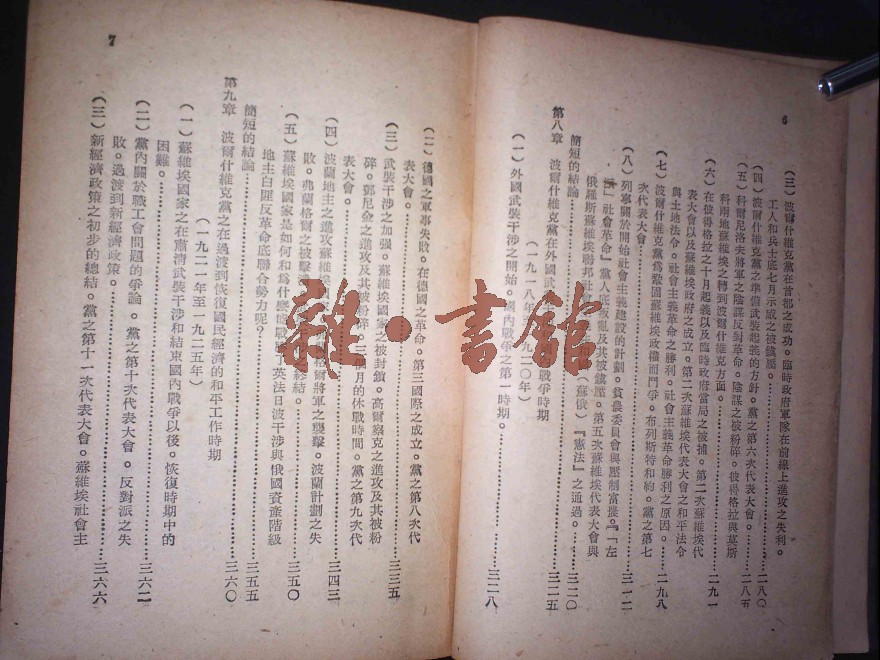 6
(三)波爾什維克黨在首都之成功。臨時政府軍隊在前線上進攻之失利。
工人和兵士底七月示威之被鎮壓。…………二八〇
(四)波爾什維克黨之準備武裝起義的方針。黨之第六次代表大會。…………二八五
(五)科爾尼洛夫將軍之陰謀反對革命。陰謀之被粉碎。彼得格拉與莫斯
科兩地蘇維埃之轉到波爾什維克方面。…………二九一
(六)在彼得格拉之十月起義以及臨時政府當局之被捕。第二次蘇維埃代
表大會以及蘇維埃政府之成立。第二次蘇維埃代表大會之和平法令
與土地法令。社會主義革命之勝利。社會主義革命勝利之原因。…………二九八
(七)波爾什維克黨為鞏固蘇維埃政權而鬥爭。布列斯特和約。黨之第七
次代表大會。…………三一二
(八)列寧關於開始社會主義建設的計劃。貧農委員會與壓制富農。『左
派』社會革命』黨人底叛亂及其被鎮壓。第五次蘇維埃代表大會與
俄羅斯蘇維埃聯邦社 和國(蘇俄)『憲法』之通過。
簡短的結論…………三二〇
第八章 波爾什維克黨在外國武 戰爭時期…………三二五
(一九一八年 九二〇年)
(一)外國武裝干涉之開始。國內戰爭之第一時期。…………三二八
7
(二)德國之軍事失敗。在德國之革命。第三國際之成立。黨之第八次代
表大會。…………三三五
(三)武裝干涉之加强。蘇維埃國家之被封鎖。高爾察克之進攻及其被粉
碎。鄧尼金之進攻及其被粉碎。三個月的休戰時間。黨之第九次代
表大會。…………三四三
(四)波蘭地主之進攻蘇維埃國 格爾將軍之襲擊。波蘭計劃之失
敗。弗蘭格爾之被擊潰 終結。…………三五〇
(五)蘇維埃國家是如何和為什麼能戰 英法日波干涉與俄國資產階級
地主白匪反革命底聯合勢力呢?
簡短的結論…………三五五
第九章 波爾什維克黨之在過渡到恢復國民經濟的和平工作時期…………三六〇
(一九二一年至一九二五年)
(一)蘇維埃國家之在肅清武裝干涉和結束國內戰爭以後。恢復時期中的
困難。…………三六二
(二)黨內關於職工會問題的爭論。黨之第十次代表大會。反對派之失
敗。過渡到新經濟政策。…………三六六
(三)新經濟政策之初步的總結。黨之第十一次代表大會。蘇維埃社會主
雜·書館